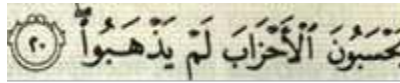 يَحْسَبُونَ ٱلْأَحْزَابَ لَمْ يَذْهَبُوا۟ ۖ ٢٠